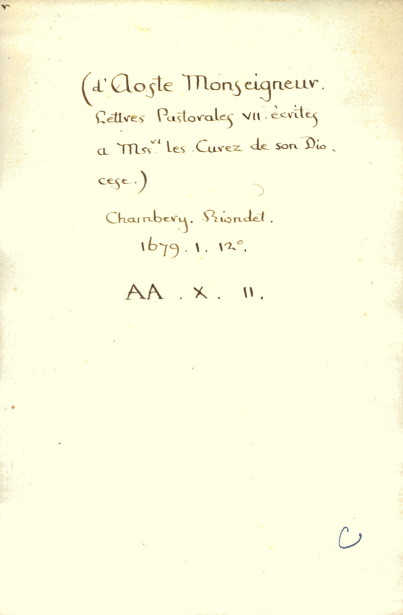 (d'Aoste Monseigneur.
Lettres Pastorales VII. écrites
a Msrs. les Curez de son Dio.
cese.)
Chambery. Riondet.
1679. 1. 12°.
AA . X . 11.
C